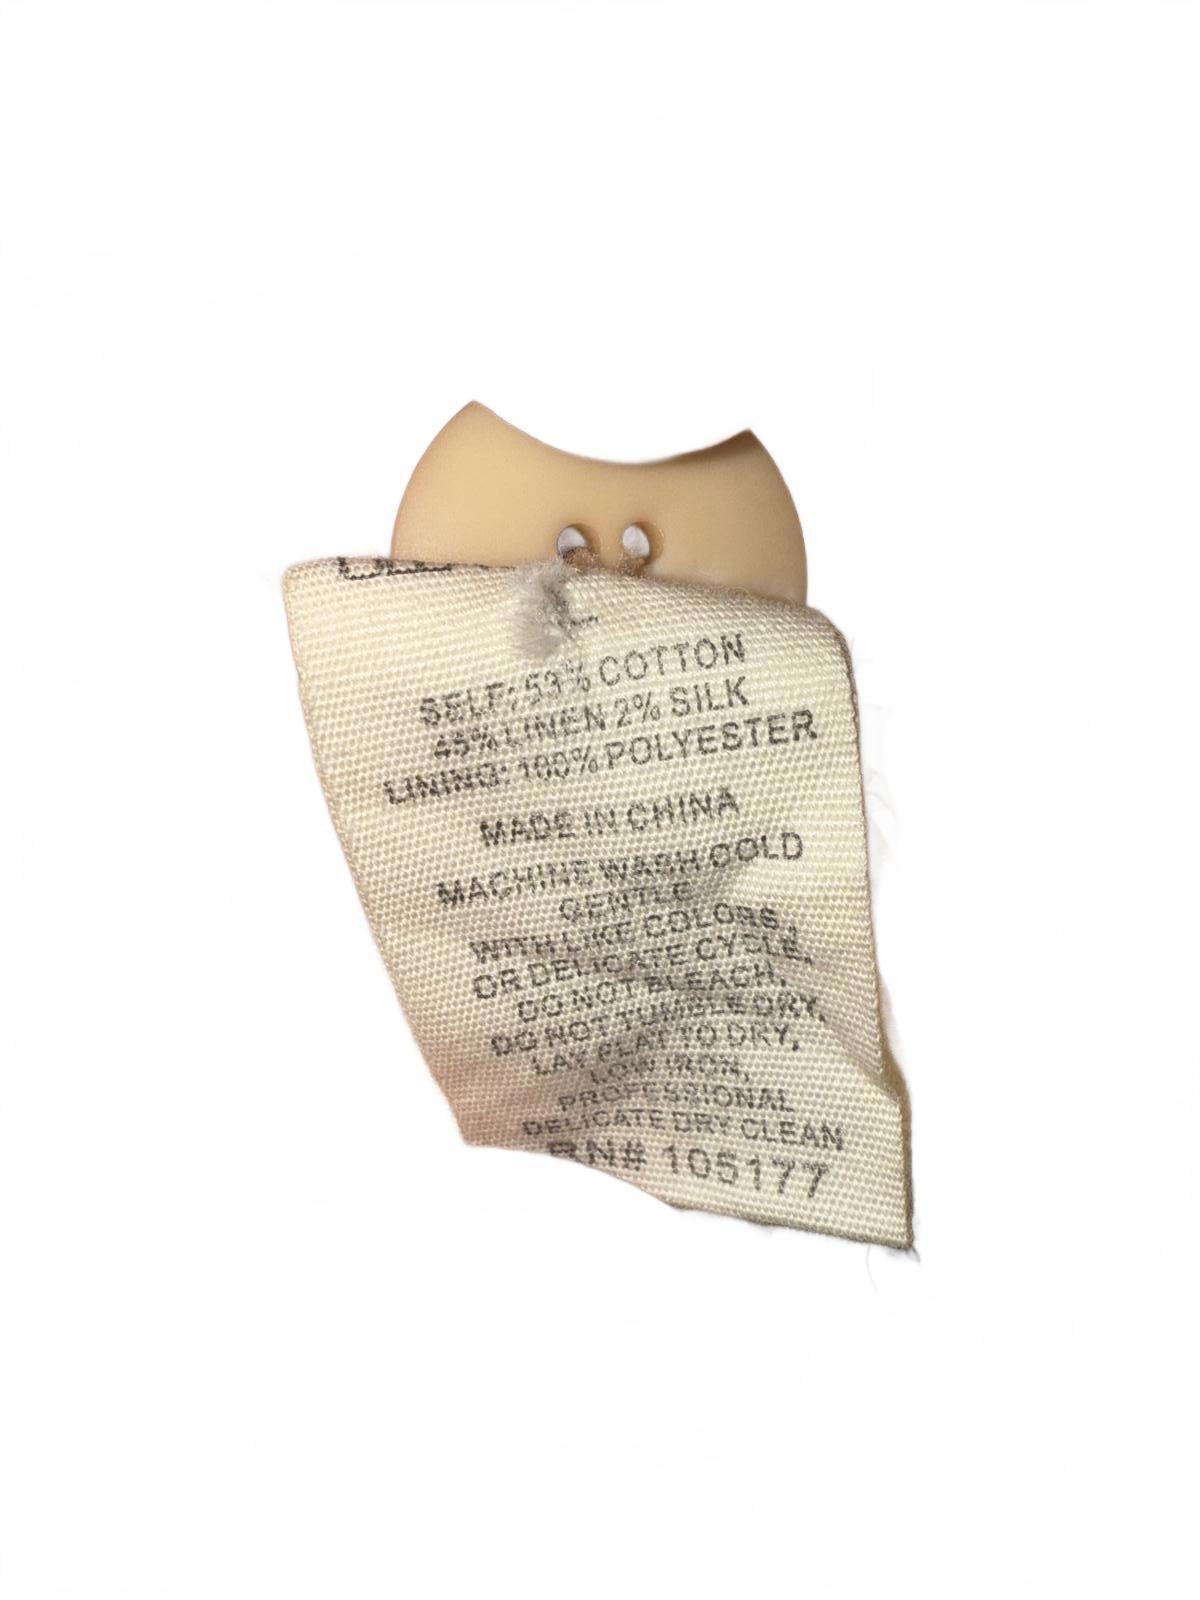 L
SELF: 53% COTTON
45% LINEN 2% SILK
LINING: 100% POLYESTER
MADE IN CHINA
MACHINE WASH COLD
GENTLE
WITH LIKE COLORS,
OR DELICATE CYCLE,
DO NOT BLEACH,
DO NOT TUMBLE DRY,
LAY FLAT TO DRY,
LOW IRON,
PROFESSIONAL
DELICATE DRY CLEAN
RN# 105177